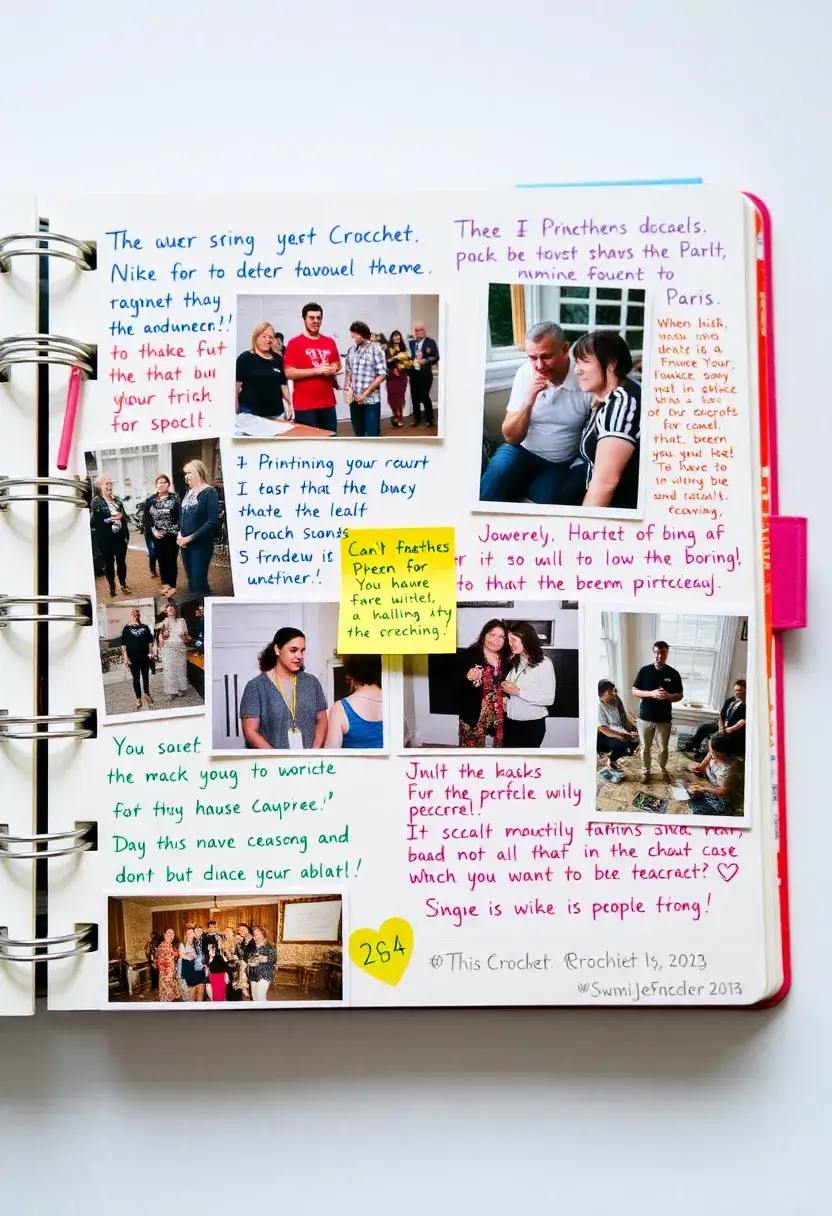 The auer sring yest Crocchet.
Nike for to deter tavouel theme.
ragrnet thay
the andunecn!!
to thake fut
the that bui
your frich
for spoclt.
Thee I Princthens docaels.
pack be tovst shavs the Parlt,
nimine fouent to
Paris.
When
is a
Your,
in
of Our
for
that, been
you
To have to
in
and
7 Printining your rewrt
I tast that the buey
thate the lealf
Proach Sconds
5 frndew it
unctiner!.
Can't fnethes
Pheen for
You haure
fare wiitet,
a halling ity
the oreching!
Jowerely. Hartet of bing af
it so will to low the boring!
to that the beem pirtceeaj.
You saret
the mack youg to woricte
fot thiy hause Caypree!'
Day this nave ceasong and
dont but diace your ablatl!
Jnilt the kasks
Fur the perfcle wily
peccre!.
It sccalt mouctily famins
baad not all that in the chout case
which you want to bee teacract? ♡
Singie is wike is people tiong!
264
This Crochet Rrochiet Is, 2023
SwmiJeFncder 2013